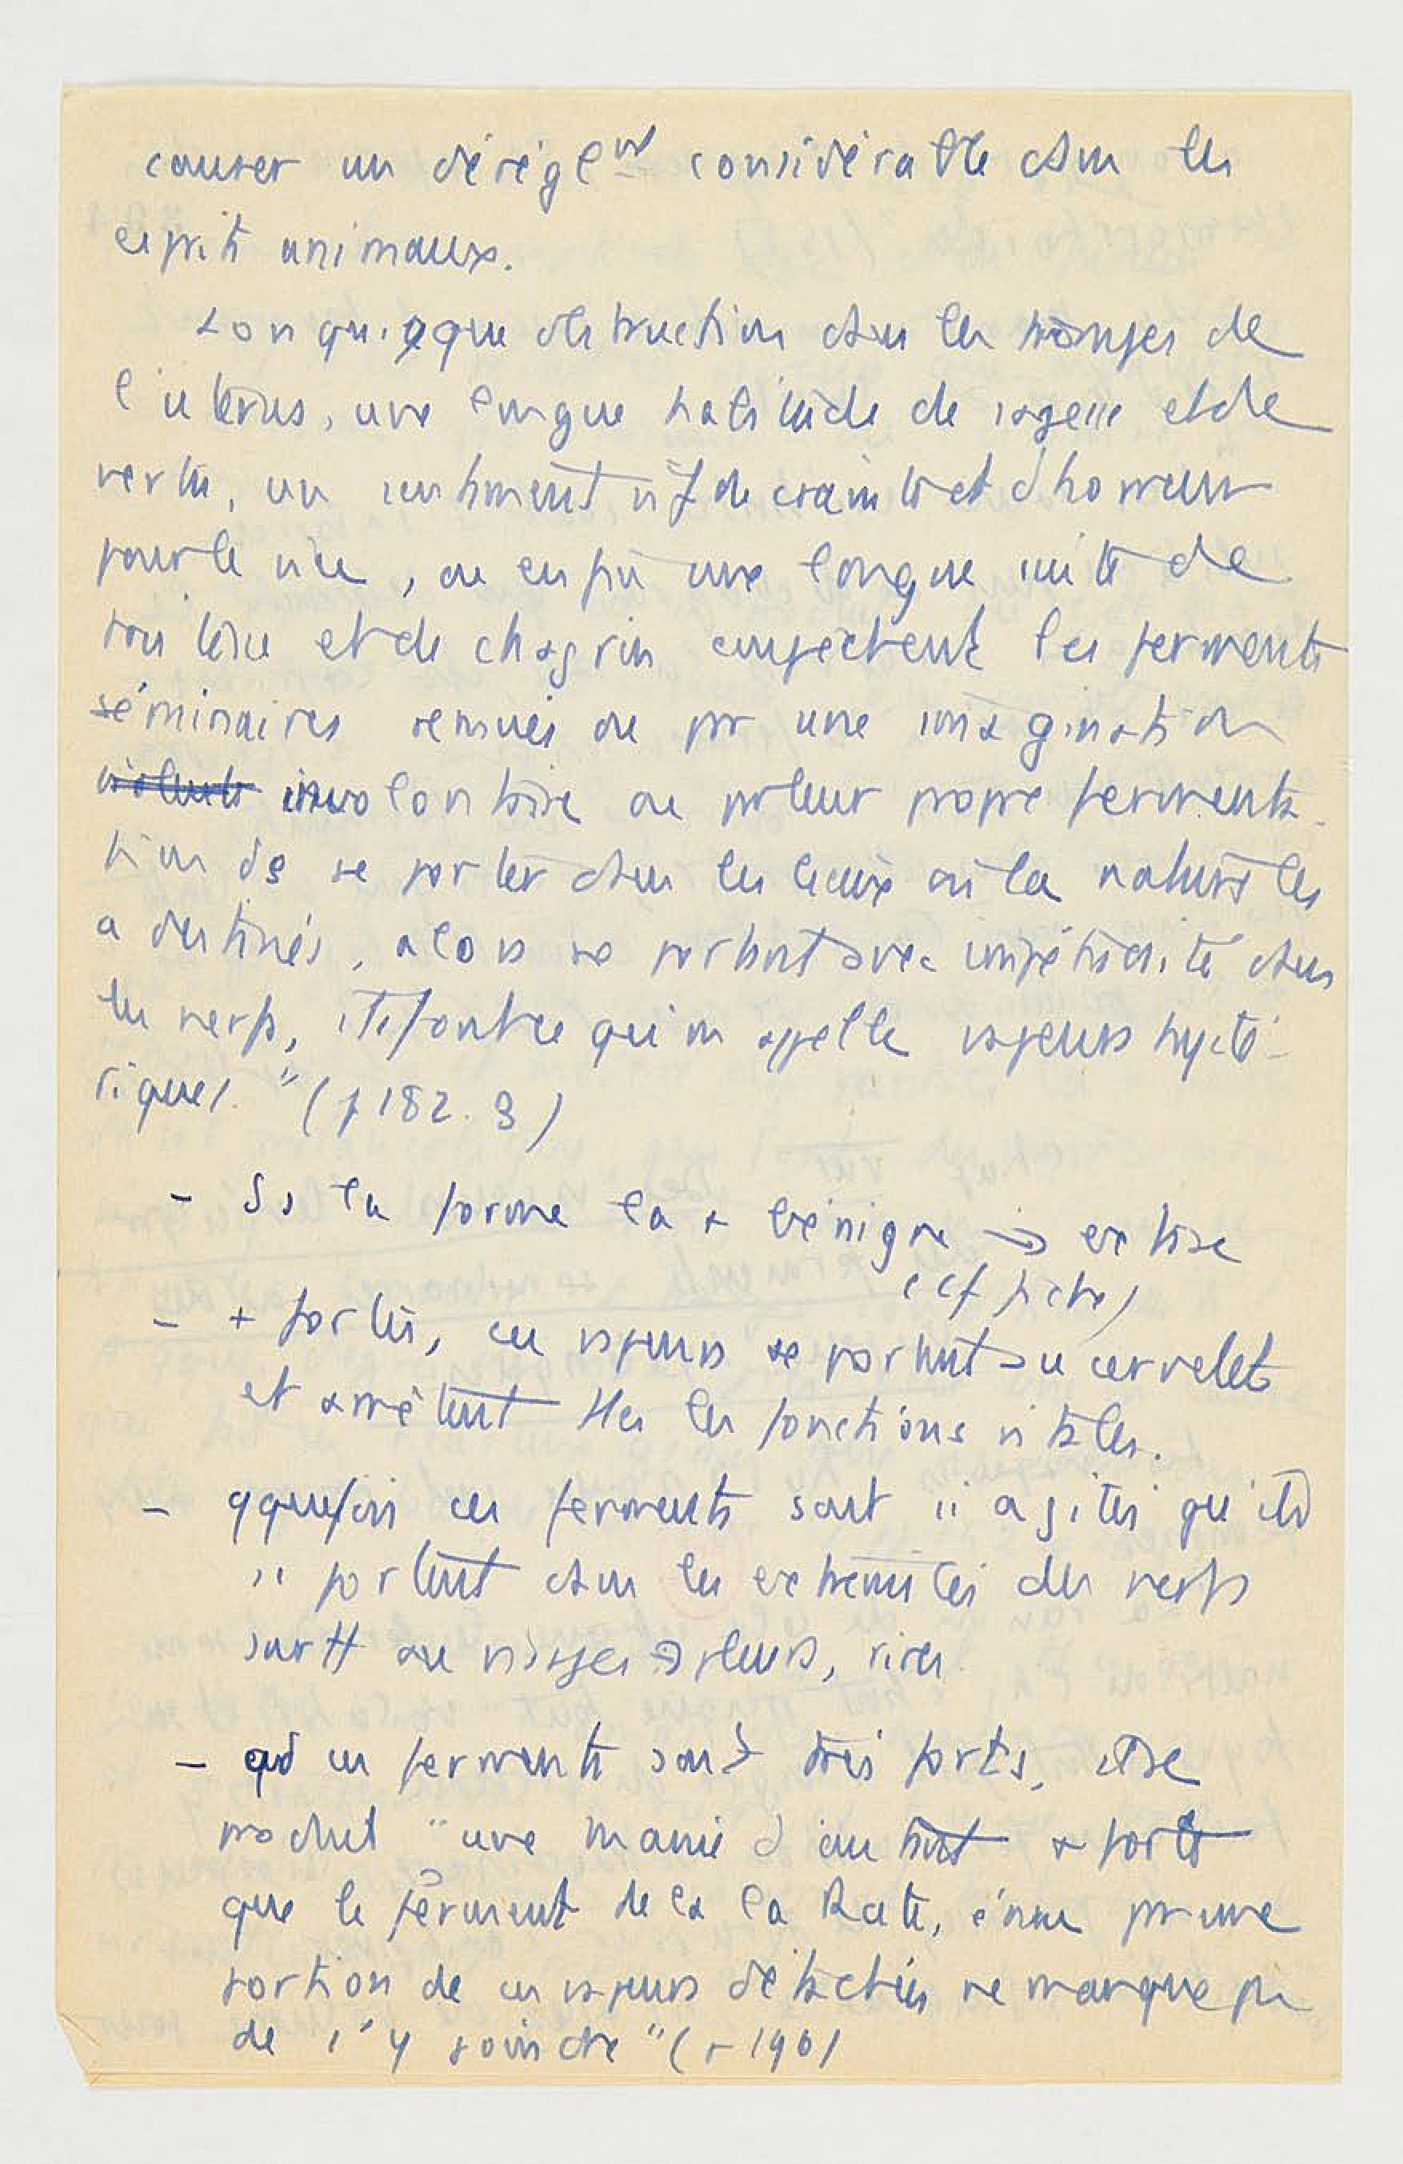 causer un dérégl^mt considérable dans les
esprits animaux.
Lorsque quelque obstruction dans les trompes de
l'uterus, une longue habitude de sagesse et de
vertu, un sentiment vif de crainte et d'horreur
pour le vice, ou enfin une longue suite de
tristesse et de chagrin empêchent les ferments
séminaires remués ou par une imagination
violente involontaire ou par leur propre fermenta-
tion de se porter dans les lieux où la nature les
a destinés, alors se portant avec impétuosité dans
les nerfs, ils font ce qu'on appelle vapeurs hysté-
riques." (p 182.3)
- Ss la forme la + bénigne → extase
(cf fiche)
- + fortes, ces vapeurs se portent au cervelet
et arrêtent ttes les fonctions vitales.
- qquefois ces ferments sont si agités qu'ils
se portent dans les extrémités des nerfs
surtt au visage → pleurs, rires.
- qd ces ferments sont très forts, il se
produit "une manie d'autant + forte
que le ferment de la Rate, émue par une
portion de ces vapeurs détachées ne manque pas
de s'y joindre" (p 190)